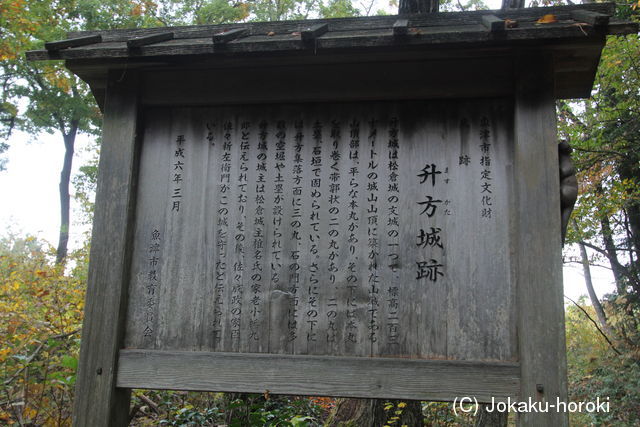 魚津市指定文化財
史跡
ますがた
升方城跡
升方城は松倉城の支城の一つで、標高二百三
十メートルの城山山頂に築かれた山城である
山頂部は、平らな本丸があり、その下には本丸
を取り巻く帯郭状の二の丸があり、二の丸は
土塁、石垣で固められている。さらにその下に
は升方集落方面に三の丸、石の門方面には多
数の空堀や土塁が設けられている。
升方城の城主は松倉城主椎名氏の家老小
郎と伝えられており、その後、佐々成政の家臣
佐々新左衛門がこの城を守ったと伝えられて
いる。
平成六年三月
魚津市教育委員会
(C) Jokaku-horoki